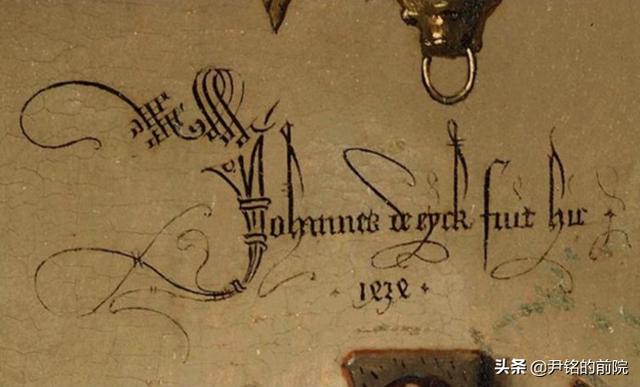 Johannes de eyck fuit hic
1434
头条 @尹铭的前院